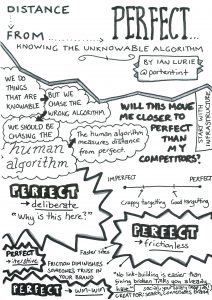 DISTANCE
FROM
PERFECT...
KNOWING THE UNKNOWABLE ALGORITHM
BY IAN LURIE
@portentint
WE DO
THINGS
THAT ARE
KNOWABLE
BUT WE
CHASE THE
WRONG ALGORITHM
WE SHOULD BE
CHASING THE
human
algorithm
The human algorithm
measures distance
from perfect.
WILL THIS MOVE
ME CLOSER TO
PERFECT
THAN MY
COMPETITORS?
START WITH
INFRASTRUCTURE
PERFECT
→ deliberate
"Why is this here?"
IMPERFECT
PERFECT
Crappy targetting
Good targetting
PERFECT
→ frictionless
PERFECT
iterative
Faster sites
FRICTION DIMINISHES
SOMEONES TRUST IN
YOUR BRAND
PERFECT → win-win
"No link-building is easier than
fixing broken links you already
have."